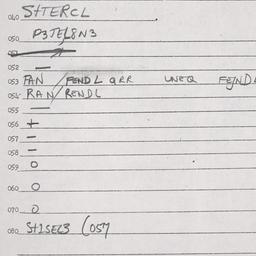 040 SHTERCL
050 P3TEL8N3
051
052 —
053 FAN / FENDL QRR UNEQ FEJND
054 RAN / RENDL
055 —
056 +
057 −
058 −
059 O
060 O
070 O
080 SH1SEL3 (057